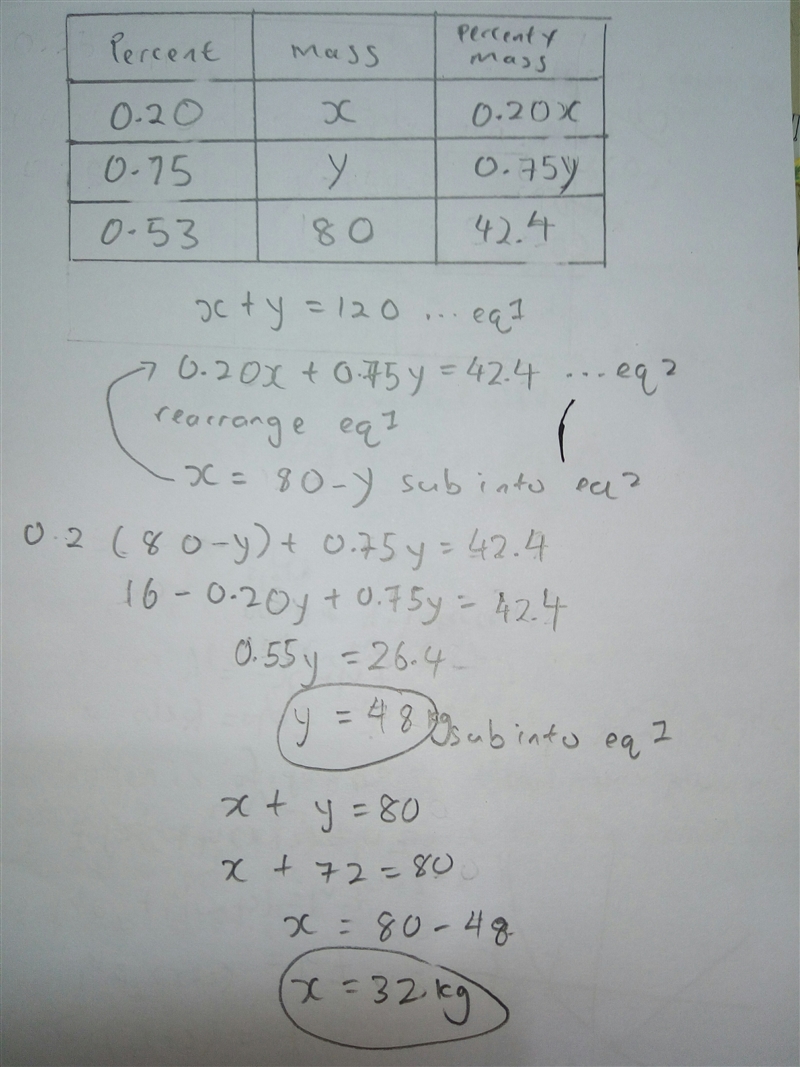 Percent Mass Percent x Mass
0.20 x 0.20x
0.75 y 0.75y
0.53 80 42.4
x + y = 120 ... eq1
0.20x + 0.75y = 42.4 ... eq2
rearrange eq1
x = 80 - y sub into eq2
0.2 (80 - y) + 0.75y = 42.4
16 - 0.20y + 0.75y = 42.4
0.55y = 26.4
y = 48 kg sub into eq1
x + y = 80
x + 72 = 80
x = 80 - 48
x = 32 kg